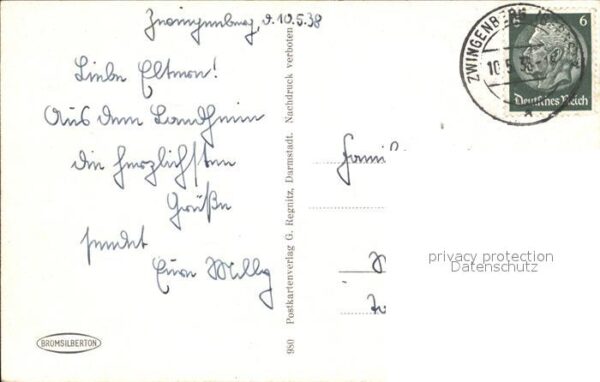 Zwingenberg, d. 10.5.38
Liebe Eltern!
Aus dem Landheim
die herzlichsten
Grüße
sendet
Eure Milly
BROMSILBERTON
980 Postkartenverlag G. Regnitz, Darmstadt. Nachdruck verboten
ZWINGENBERG
10.5.38
6
6
Deutsches Reich
Famil
privacy protection
Datenschutz